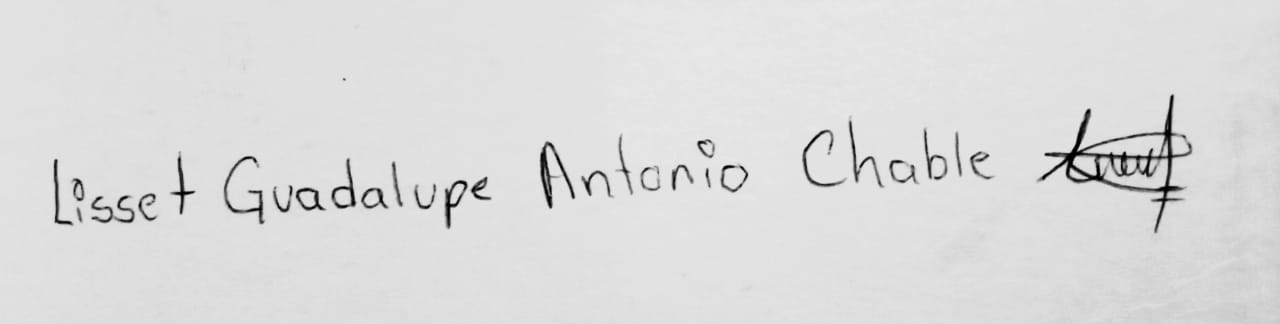 Lisset Guadalupe Antonio Chable